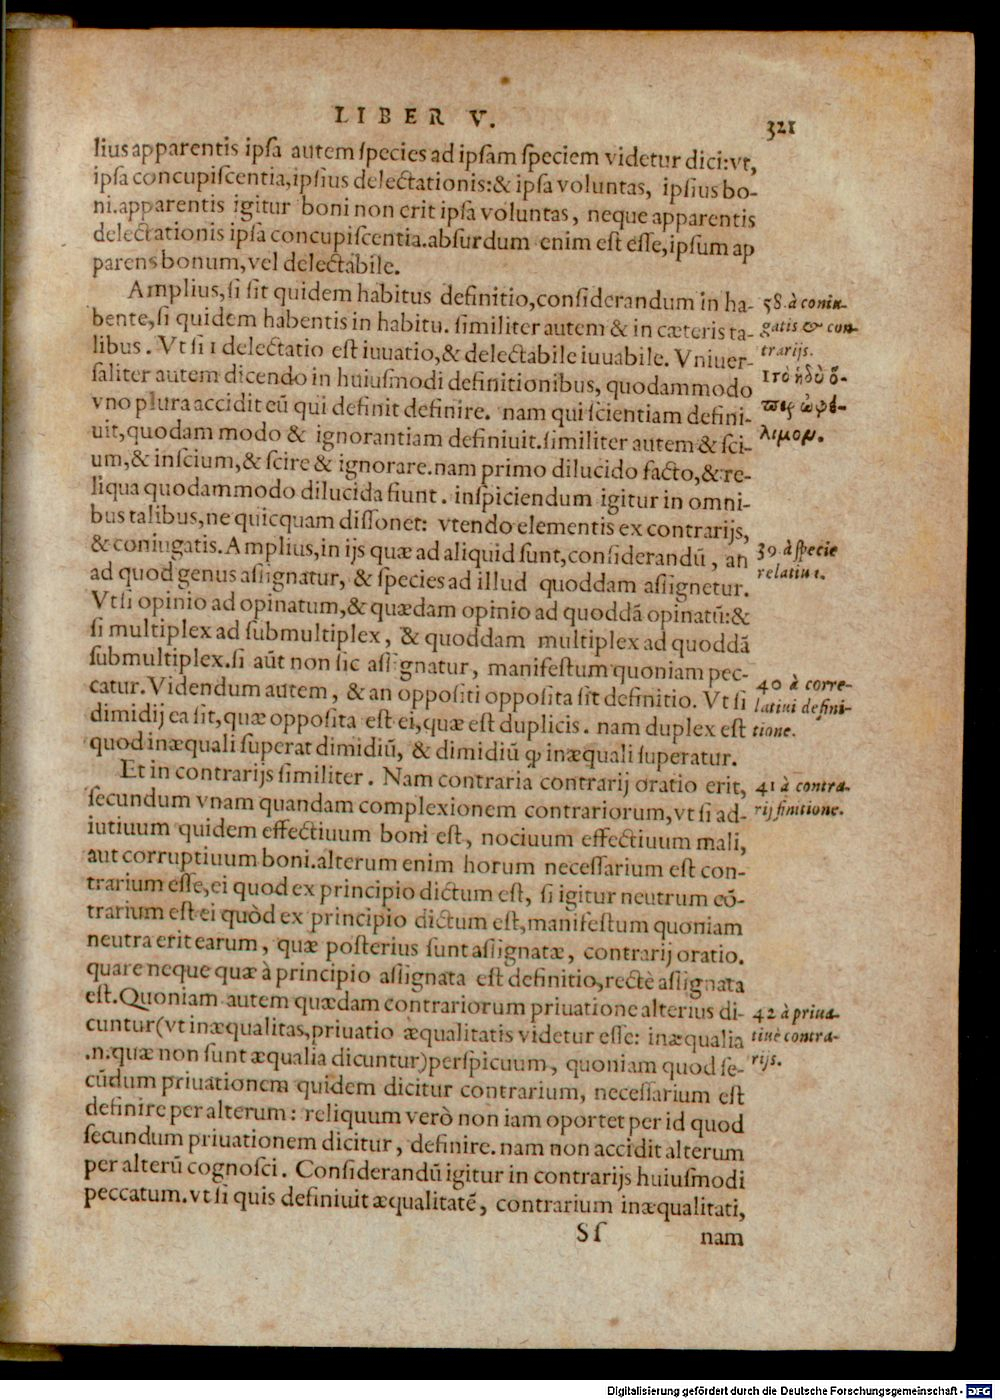 LIBER V.
321
lius apparentis ipſa autem ſpecies ad ipſam ſpeciem videtur dici:vt,
ipſa concupiſcentia,ipſius delectationis:& ipſa voluntas, ipſius bo-
ni.apparentis igitur boni non erit ipſa voluntas, neque apparentis
delectationis ipſa concupiſcentia.abſurdum enim eſt eſſe,ipſum ap
parens bonum,vel delectabile.
Amplius,ſi ſit quidem habitus definitio,conſiderandum in ha-
bente,ſi quidem habentis in habitu. ſimiliter autem & in cæteris ta-
libus. Vt ſi 1 delectatio eſt iuuatio,& delectabile iuuabile. Vniuer-
ſaliter autem dicendo in huiuſmodi definitionibus, quodammodo
vno plura accidit eū qui definit definire. nam qui ſcientiam defini-
uit,quodam modo & ignorantiam definiuit.ſimiliter autem & ſci-
um,& inſcium,& ſcire & ignorare.nam primo dilucido facto,& re-
liqua quodammodo dilucida fiunt. inſpiciendum igitur in omni-
bus talibus,ne quicquam diſſonet: vtendo elementis ex contrarijs,
& coniugatis.Amplius,in ijs quæ ad aliquid ſunt,conſiderandū, an
ad quod genus aſſignatur, & ſpecies ad illud quoddam aſſignetur.
Vt ſi opinio ad opinatum,& quædam opinio ad quoddā opinatū:&
ſi multiplex ad ſubmultiplex, & quoddam multiplex ad quoddā
ſubmultiplex.ſi aūt non ſic aſſignatur, manifeſtum quoniam pec-
catur.Videndum autem, & an oppoſiti oppoſita ſit definitio. Vt ſi
dimidij ea ſit,quæ oppoſita eſt ei,quæ eſt duplicis. nam duplex eſt
quod inæquali ſuperat dimidiū, & dimidiū ꝙ inæquali ſuperatur.
Et in contrarijs ſimiliter. Nam contraria contrarij oratio erit,
ſecundum vnam quandam complexionem contrariorum,vt ſi ad-
iutiuum quidem effectiuum boni eſt, nociuum effectiuum mali,
aut corruptiuum boni.alterum enim horum neceſſarium eſt con-
trarium eſſe,ei quod ex principio dictum eſt, ſi igitur neutrum cō-
trarium eſt ei quòd ex principio dictum eſt,manifeſtum quoniam
neutra erit earum, quæ poſterius ſunt aſſignatæ, contrarij oratio.
quare neque quæ à principio aſſignata eſt definitio,rectè aſſignata
eſt.Quoniam autem quædam contrariorum priuatione alterius di-
cuntur(vt inæqualitas,priuatio æqualitatis videtur eſſe: inæqualia
.n.quæ non ſunt æqualia dicuntur)perſpicuum, quoniam quod ſe-
cūdum priuationem quidem dicitur contrarium, neceſſarium eſt
definire per alterum: reliquum verò non iam oportet per id quod
ſecundum priuationem dicitur, definire. nam non accidit alterum
per alterū cognoſci. Conſiderandū igitur in contrarijs huiuſmodi
peccatum.vt ſi quis definiuit æqualitatē, contrarium inæqualitati,
Sſ
nam
58 à coniu-
gatis & con-
trarijs.
1 τὸ ἡδὺ ὅ-
περ ὠφέ-
λιμον.
39 à ſpecie
relatiui.
40 à corre-
latiui defini-
tione.
41 à contra-
rij finitione.
42 à priua-
tiuè contra-
rijs.
Digitalisierung gefördert durch die Deutsche Forschungsgemeinschaft - DFG